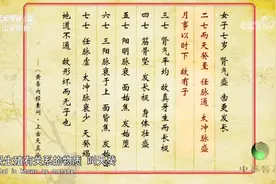 女子七岁 肾气盛 齿更发长
二七而天癸至 任脉通 太冲脉盛
月事以时下 故有子
三七 肾气平均 故真牙生而长极
四七 筋骨坚 发长极 身体壮盛
五七 阳明脉衰 面始焦 发始堕
六七 三阳脉衰于上 面皆焦 发始白
七七 任脉虚 太冲脉衰少 天癸竭
地道不通 故形坏而无子也
《黄帝内经素问·上古天真
生殖有关系的物质 叫天癸
is known as